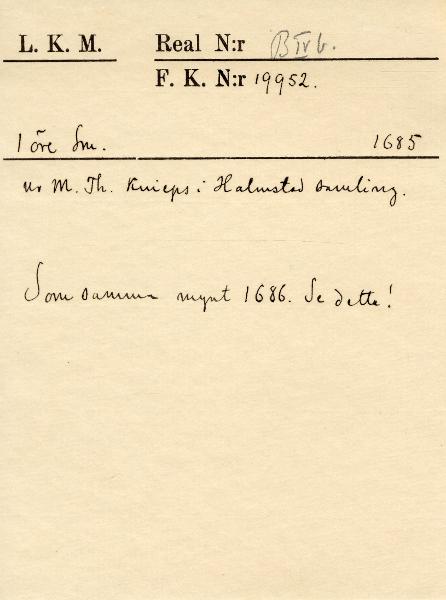 L. K. M. Real N:r B IV b.
F. K. N:r 19952.
1 öre Sm. 1685
ur M. Th. Knieps i Halmstad samling.
Som samma mynt 1686. Se detta!